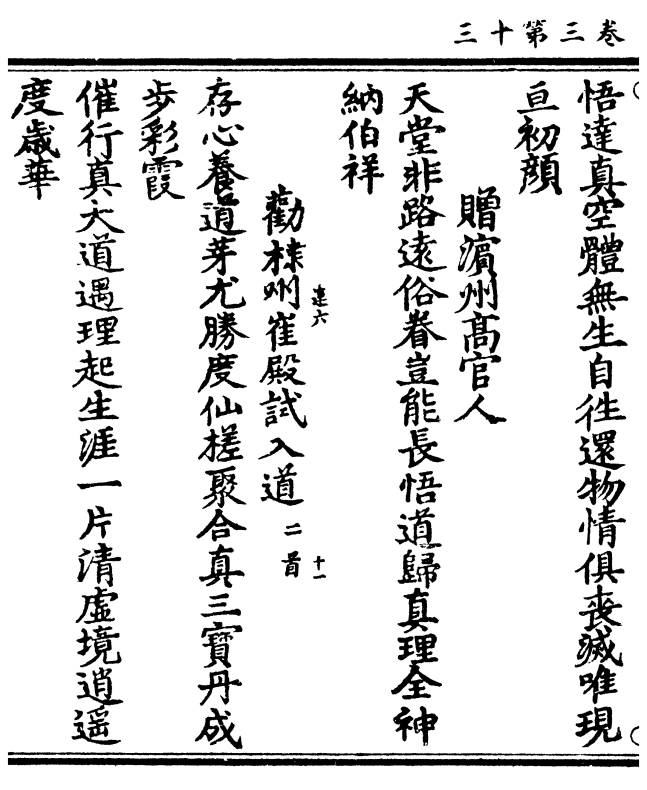 卷三第十三
悟達真空體無生自徃還物情俱喪滅唯現
亘初顔
贈濵州髙官人
天堂非路遠俗眷豈能長悟道歸真理全神
納伯祥
勸棣州崔殿試入道二首
連六
十一
存心養道芽尤勝度仙槎聚合真三寳丹成
步彩霞
催行真大道遇理起生涯一片清虛境逍遥
度歳華